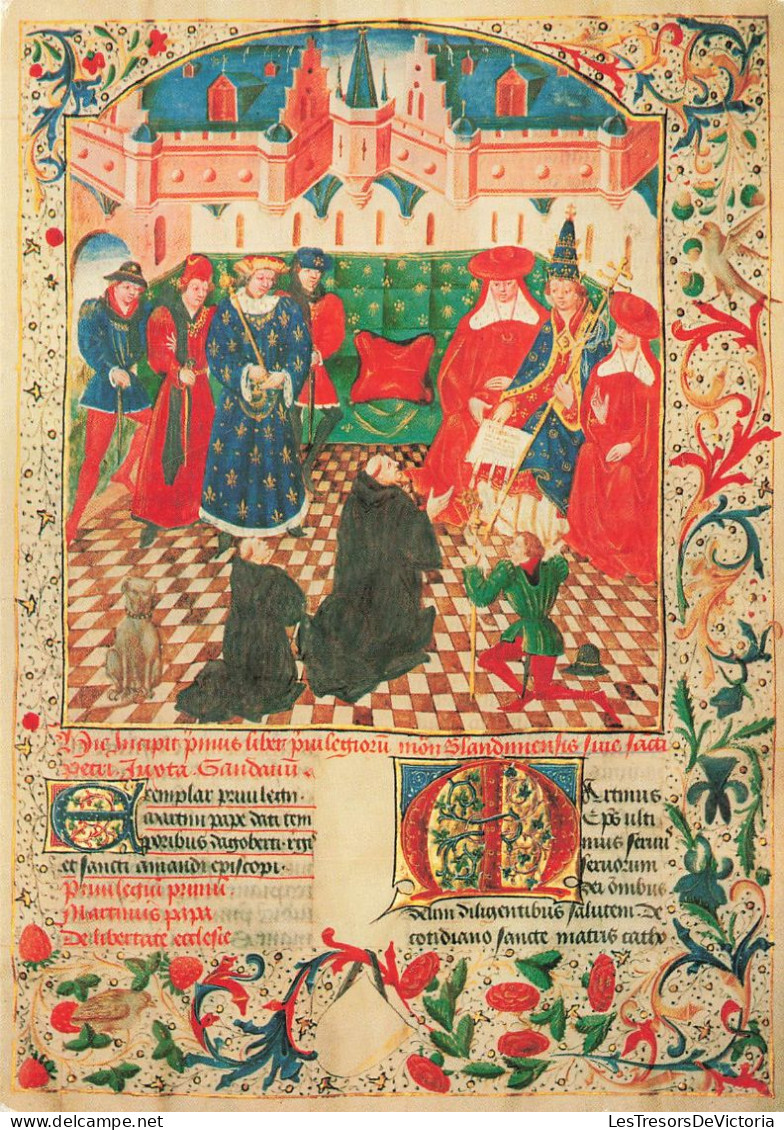 Hic Incipit pmus liber puilegioru mon Blandiniensis siue sacti
Petri Iuxta Gandauu
Exemplar priuilegii
martini pape dati tem
poribus dagoberti regis
et sancti amandi episcopi
Priuilegiu primu
Martinus papa
De libertate ecclesie
Martinus
Eps ulti
mus seruus
seruorum
dei omibus
deum diligentibus salutem. De
cotidiano sancte matris catho
LesTresorsDeVictoria